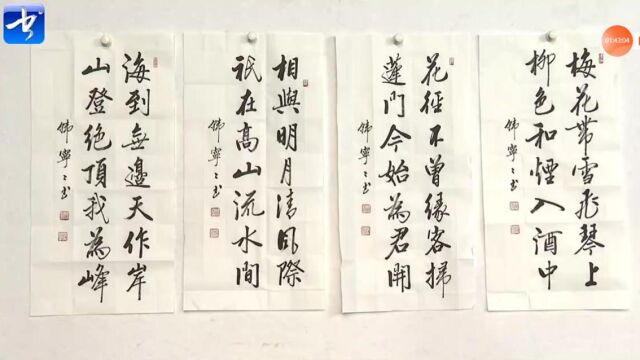 书
01:43:04
梅花帶雪飛琴上
柳色和煙入酒中
寧〻书
花徑不曾緣客掃
蓬門今始為君開
寧〻书
相與明月清風際
祇在高山流水間
寧〻书
海到無邊天作岸
山登絕頂我為峰
寧〻书